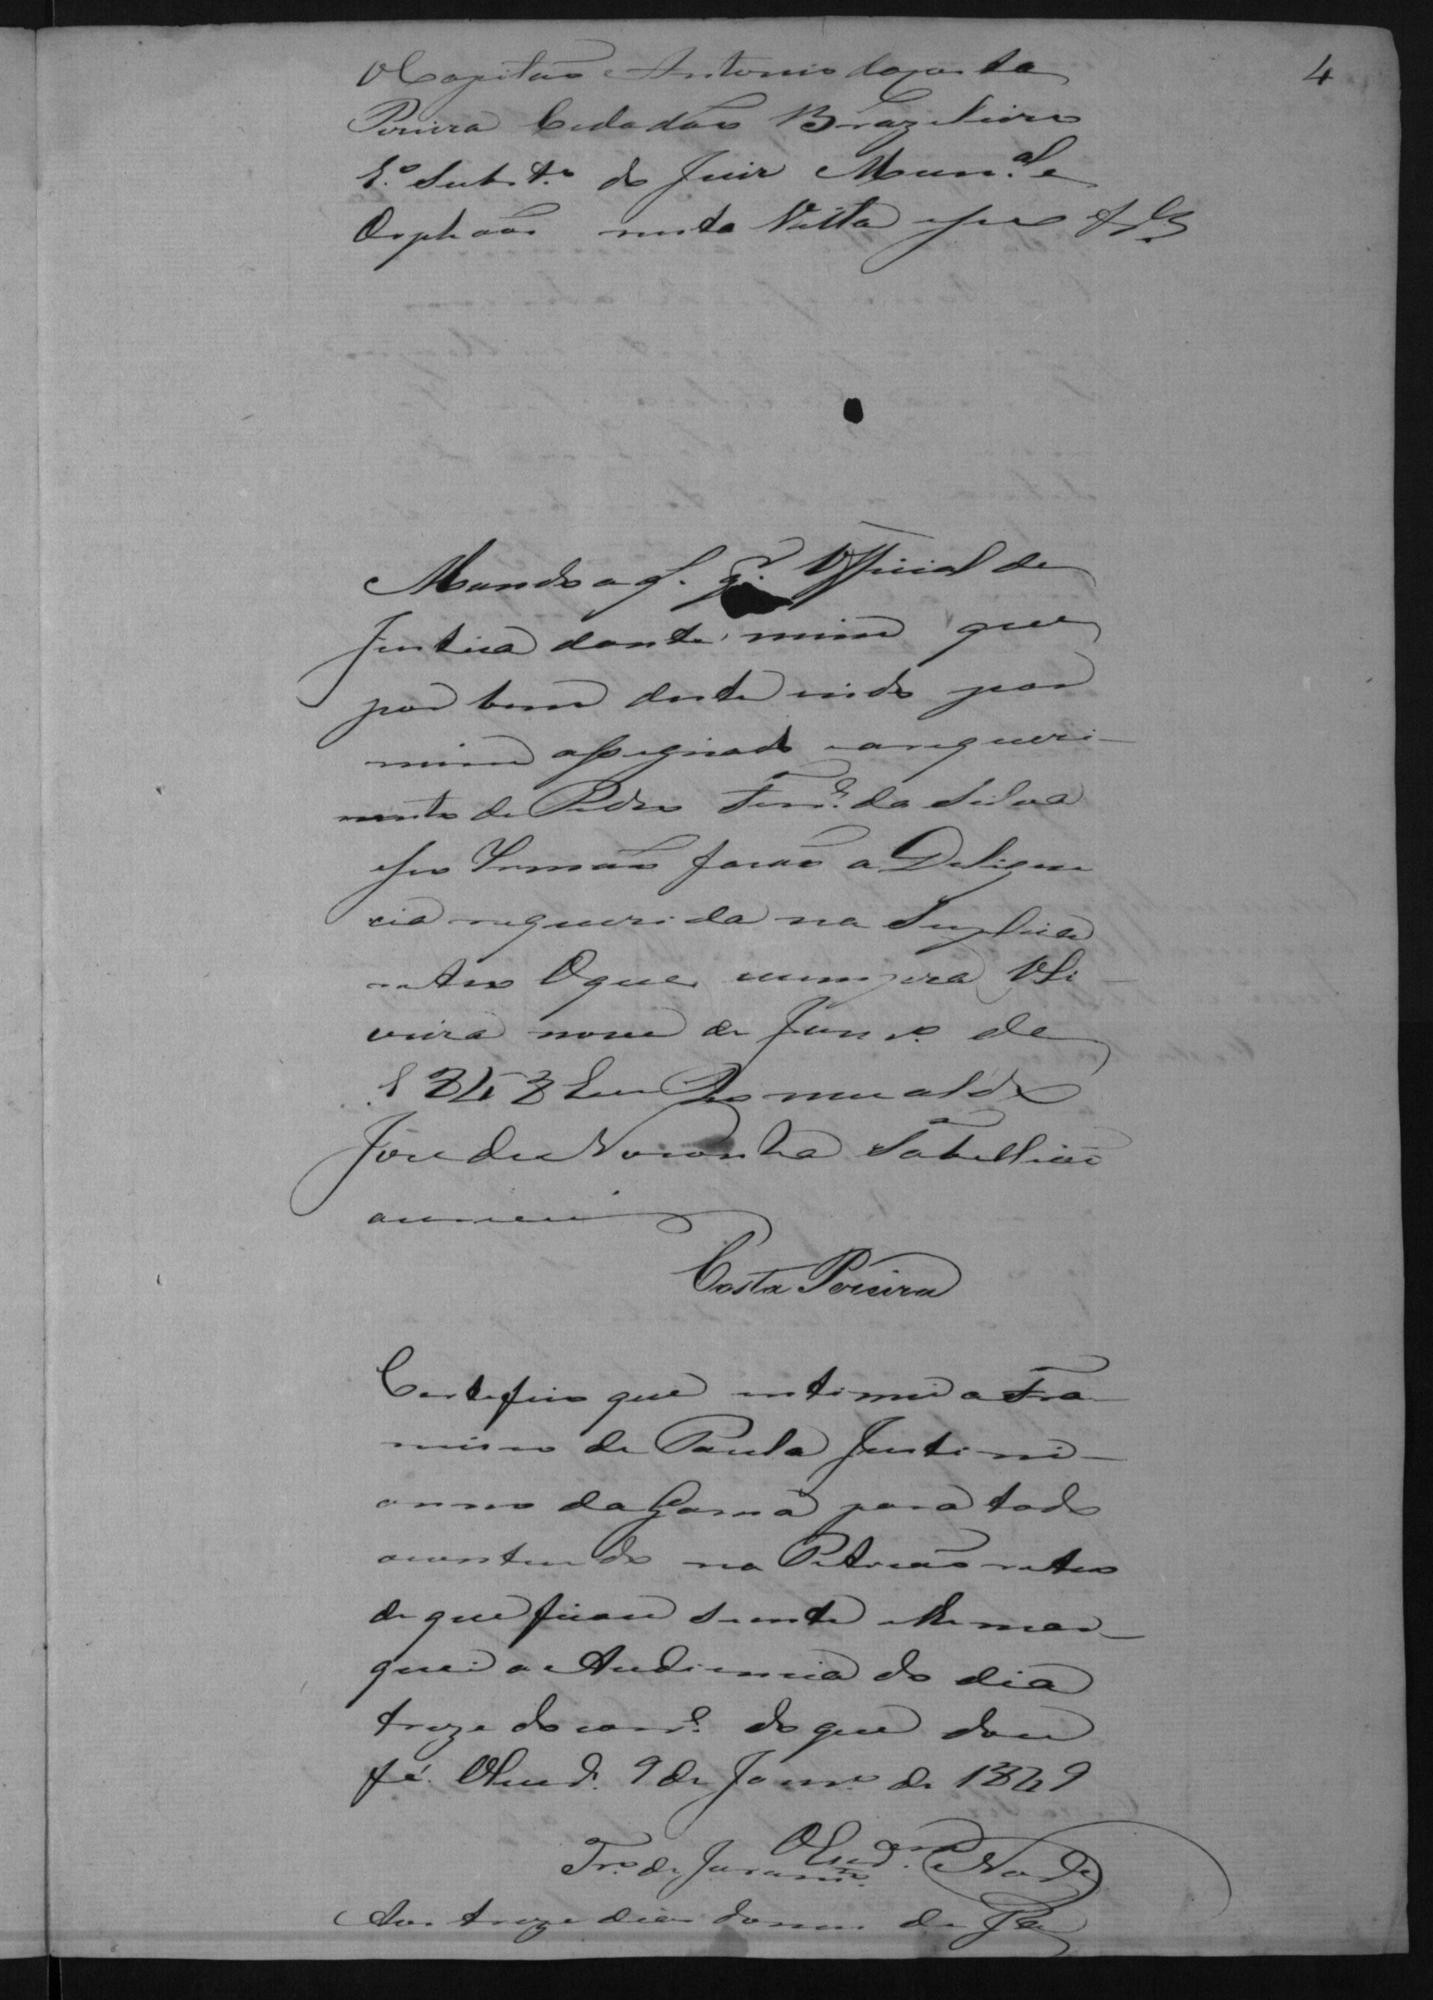 4
O Capitão Antonio da Costa
Pereira Cidadão Brazileiro
1.º Subst.º do Juiz Mun.al e
Orphãos nesta Villa e seo
Mando a q.l q.r Official de
Justica dante mim que
por bem deste indo por
mim assignado e a requeri-
mento de Pedro Ferr.ª da Silva
e seo Irmão facão a Deligen
cia requerida na Suplica
retro O que cumpra Oli-
veira nove de Janr.º de
Eu Romualdo
José de Noronha Tabellião
escrevi
Costa Pereira
Certefico que intimei a Fra
ncisco de Paula Justini-
anno da Gama para todo
acontendo na Peticão retro
de que ficou siente e lhe mar-
quei a Audiencia do dia
treze do corr.e do que dou
fé. 9 de Janr.º de 1869
Tr.º de Juram.to
Aos treze dias do mes de Ja